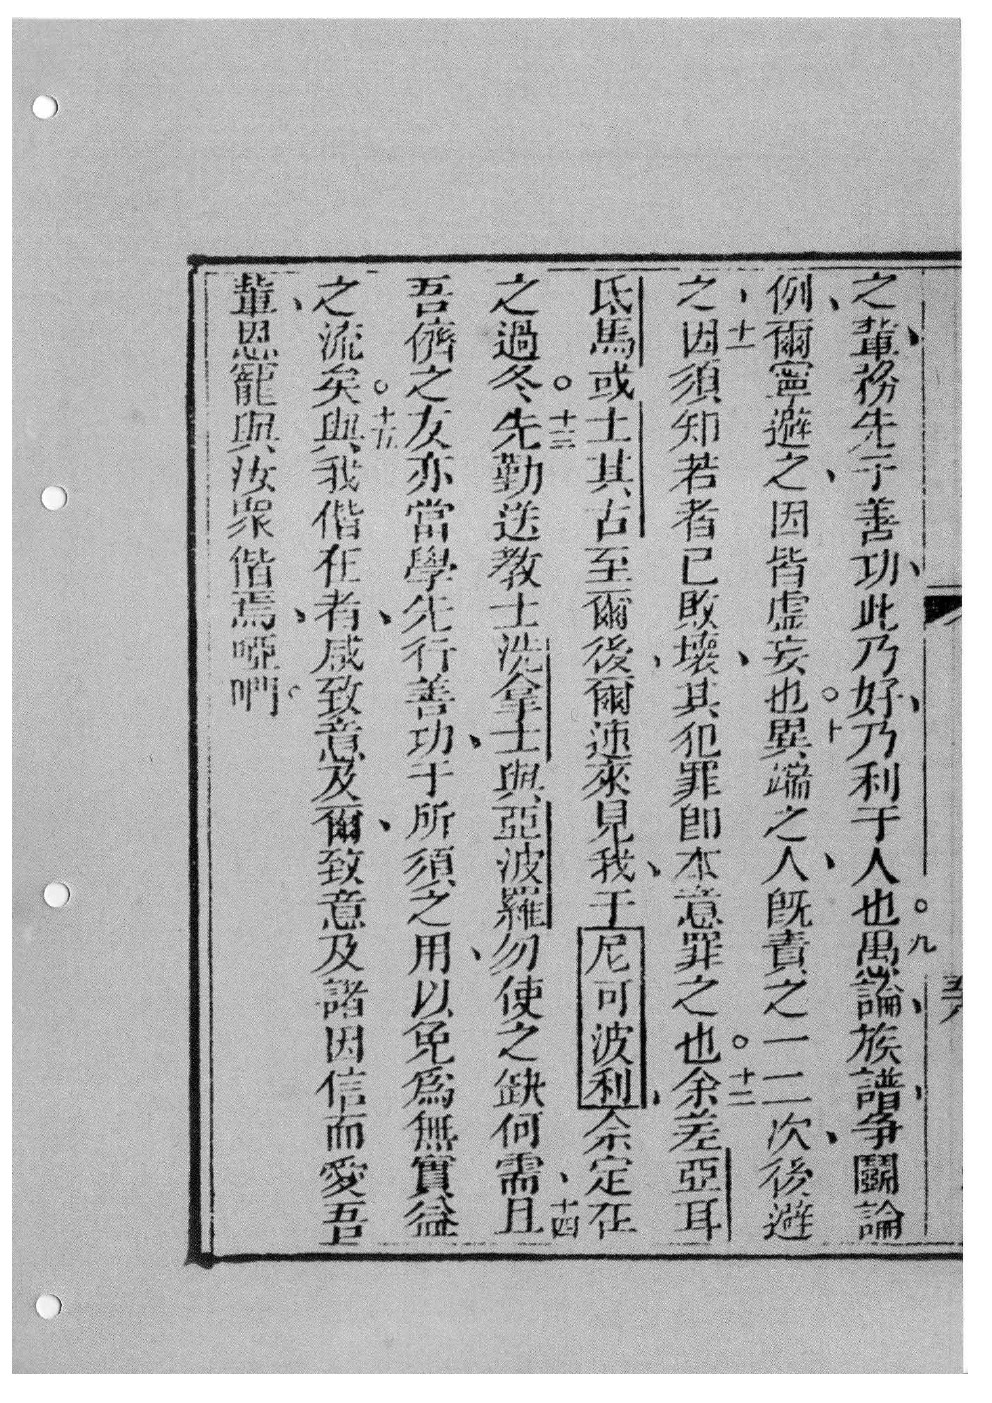 之輩、務先于善功、此乃好、乃利于人也。九愚論、族譜、爭鬬、論
例、爾寧避之、因皆虛妄也。十異端之人、既責之一二次、後避
之、十一因須知若者已敗壞、其犯罪卽本意罪之也。十二余差亞耳
氐馬或士其古至爾後、爾速來見我、于尼可波利、余定在
之過冬。十三先勤送教士洗拿士與亞波羅勿使之缺何需、十四且
吾儕之友亦當學先行善功、于所須之用、以免爲無實益
之流矣。十五與我偕在者、咸致意及爾、致意及諸因信而愛吾
輩、恩寵與汝衆偕焉、啞吶。